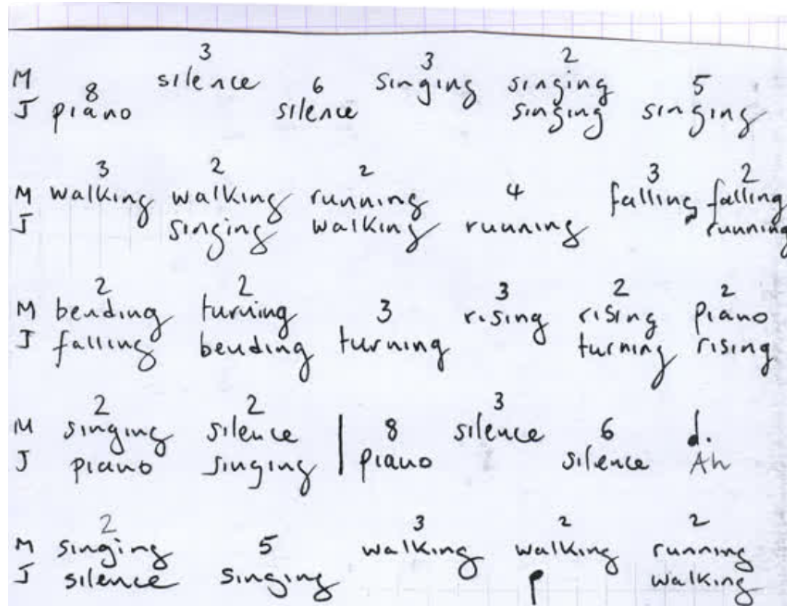 3 3 2
M silence singing singing 5
8 6
J piano silence singing singing
3 2 2 4 3 2
M walking walking running falling falling
J singing walking running running
2 2 3 3 2 2
M bending turning rising rising piano
J falling bending turning turning rising
2 2 8 3 6 d.
M singing silence silence
J piano singing piano silence Ah
2 5 3 2 2
M singing walking walking running
J silence singing walking